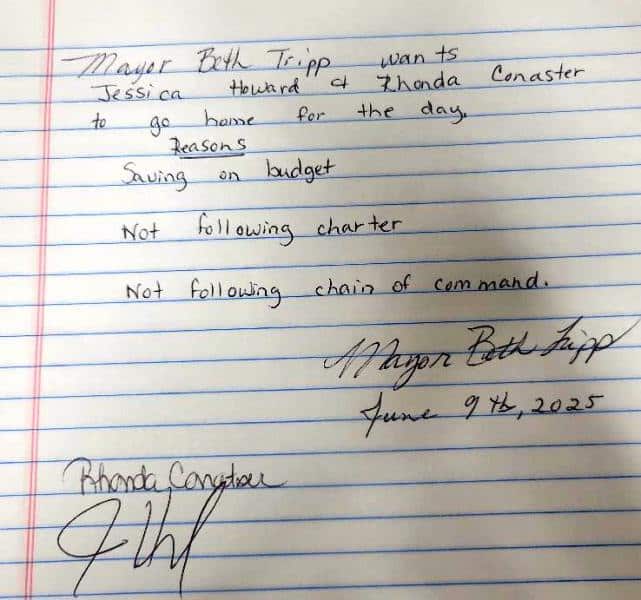 Mayor Beth Tripp wants
Jessica Howard & Rhonda Conaster
to go home for the day.
Reasons
Saving on budget
Not following charter
Not following chain of command.
Mayor Beth Tripp
June 9th, 2025
Rhonda